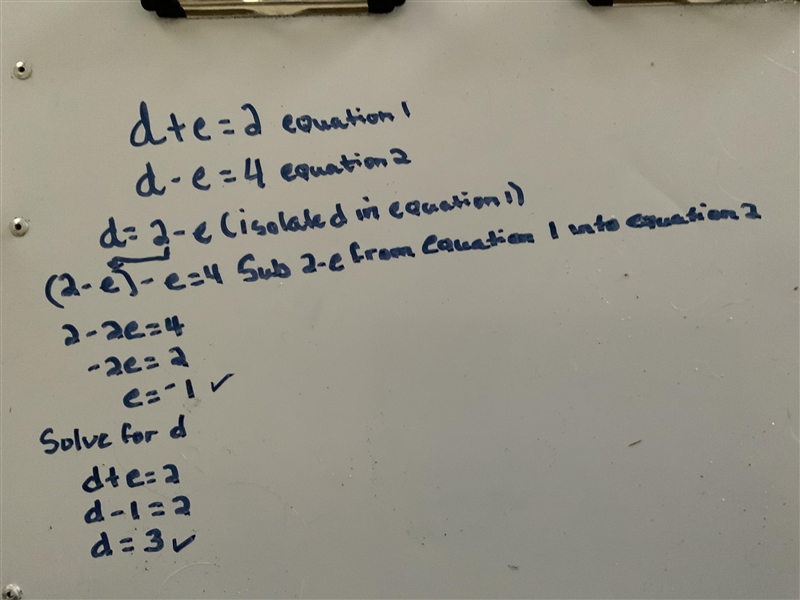 d+e=2 equation 1
d-e=4 equation 2
d=2-e (isolate d in equation 1)
(2-e)-e=4 Sub 2-e from equation 1 into equation 2
2-2e=4
-2e=2
e=-1 ✓
Solve for d
d+e=2
d-1=2
d=3 ✓